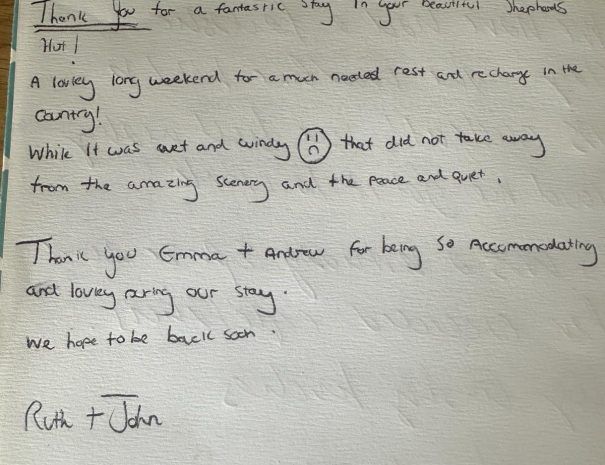 Thank You for a fantastic stay in your beautiful Shephards
Hut!
A lovley long weekend for a much needed rest and recharge in the
Country!
While it was wet and windy ☹ that did not take away
from the amazing scenery and the peace and quiet.
Thank you Emma + Andrew for being so Accomomodating
and lovley during our stay.
We hope to be back soon.
Ruth + John